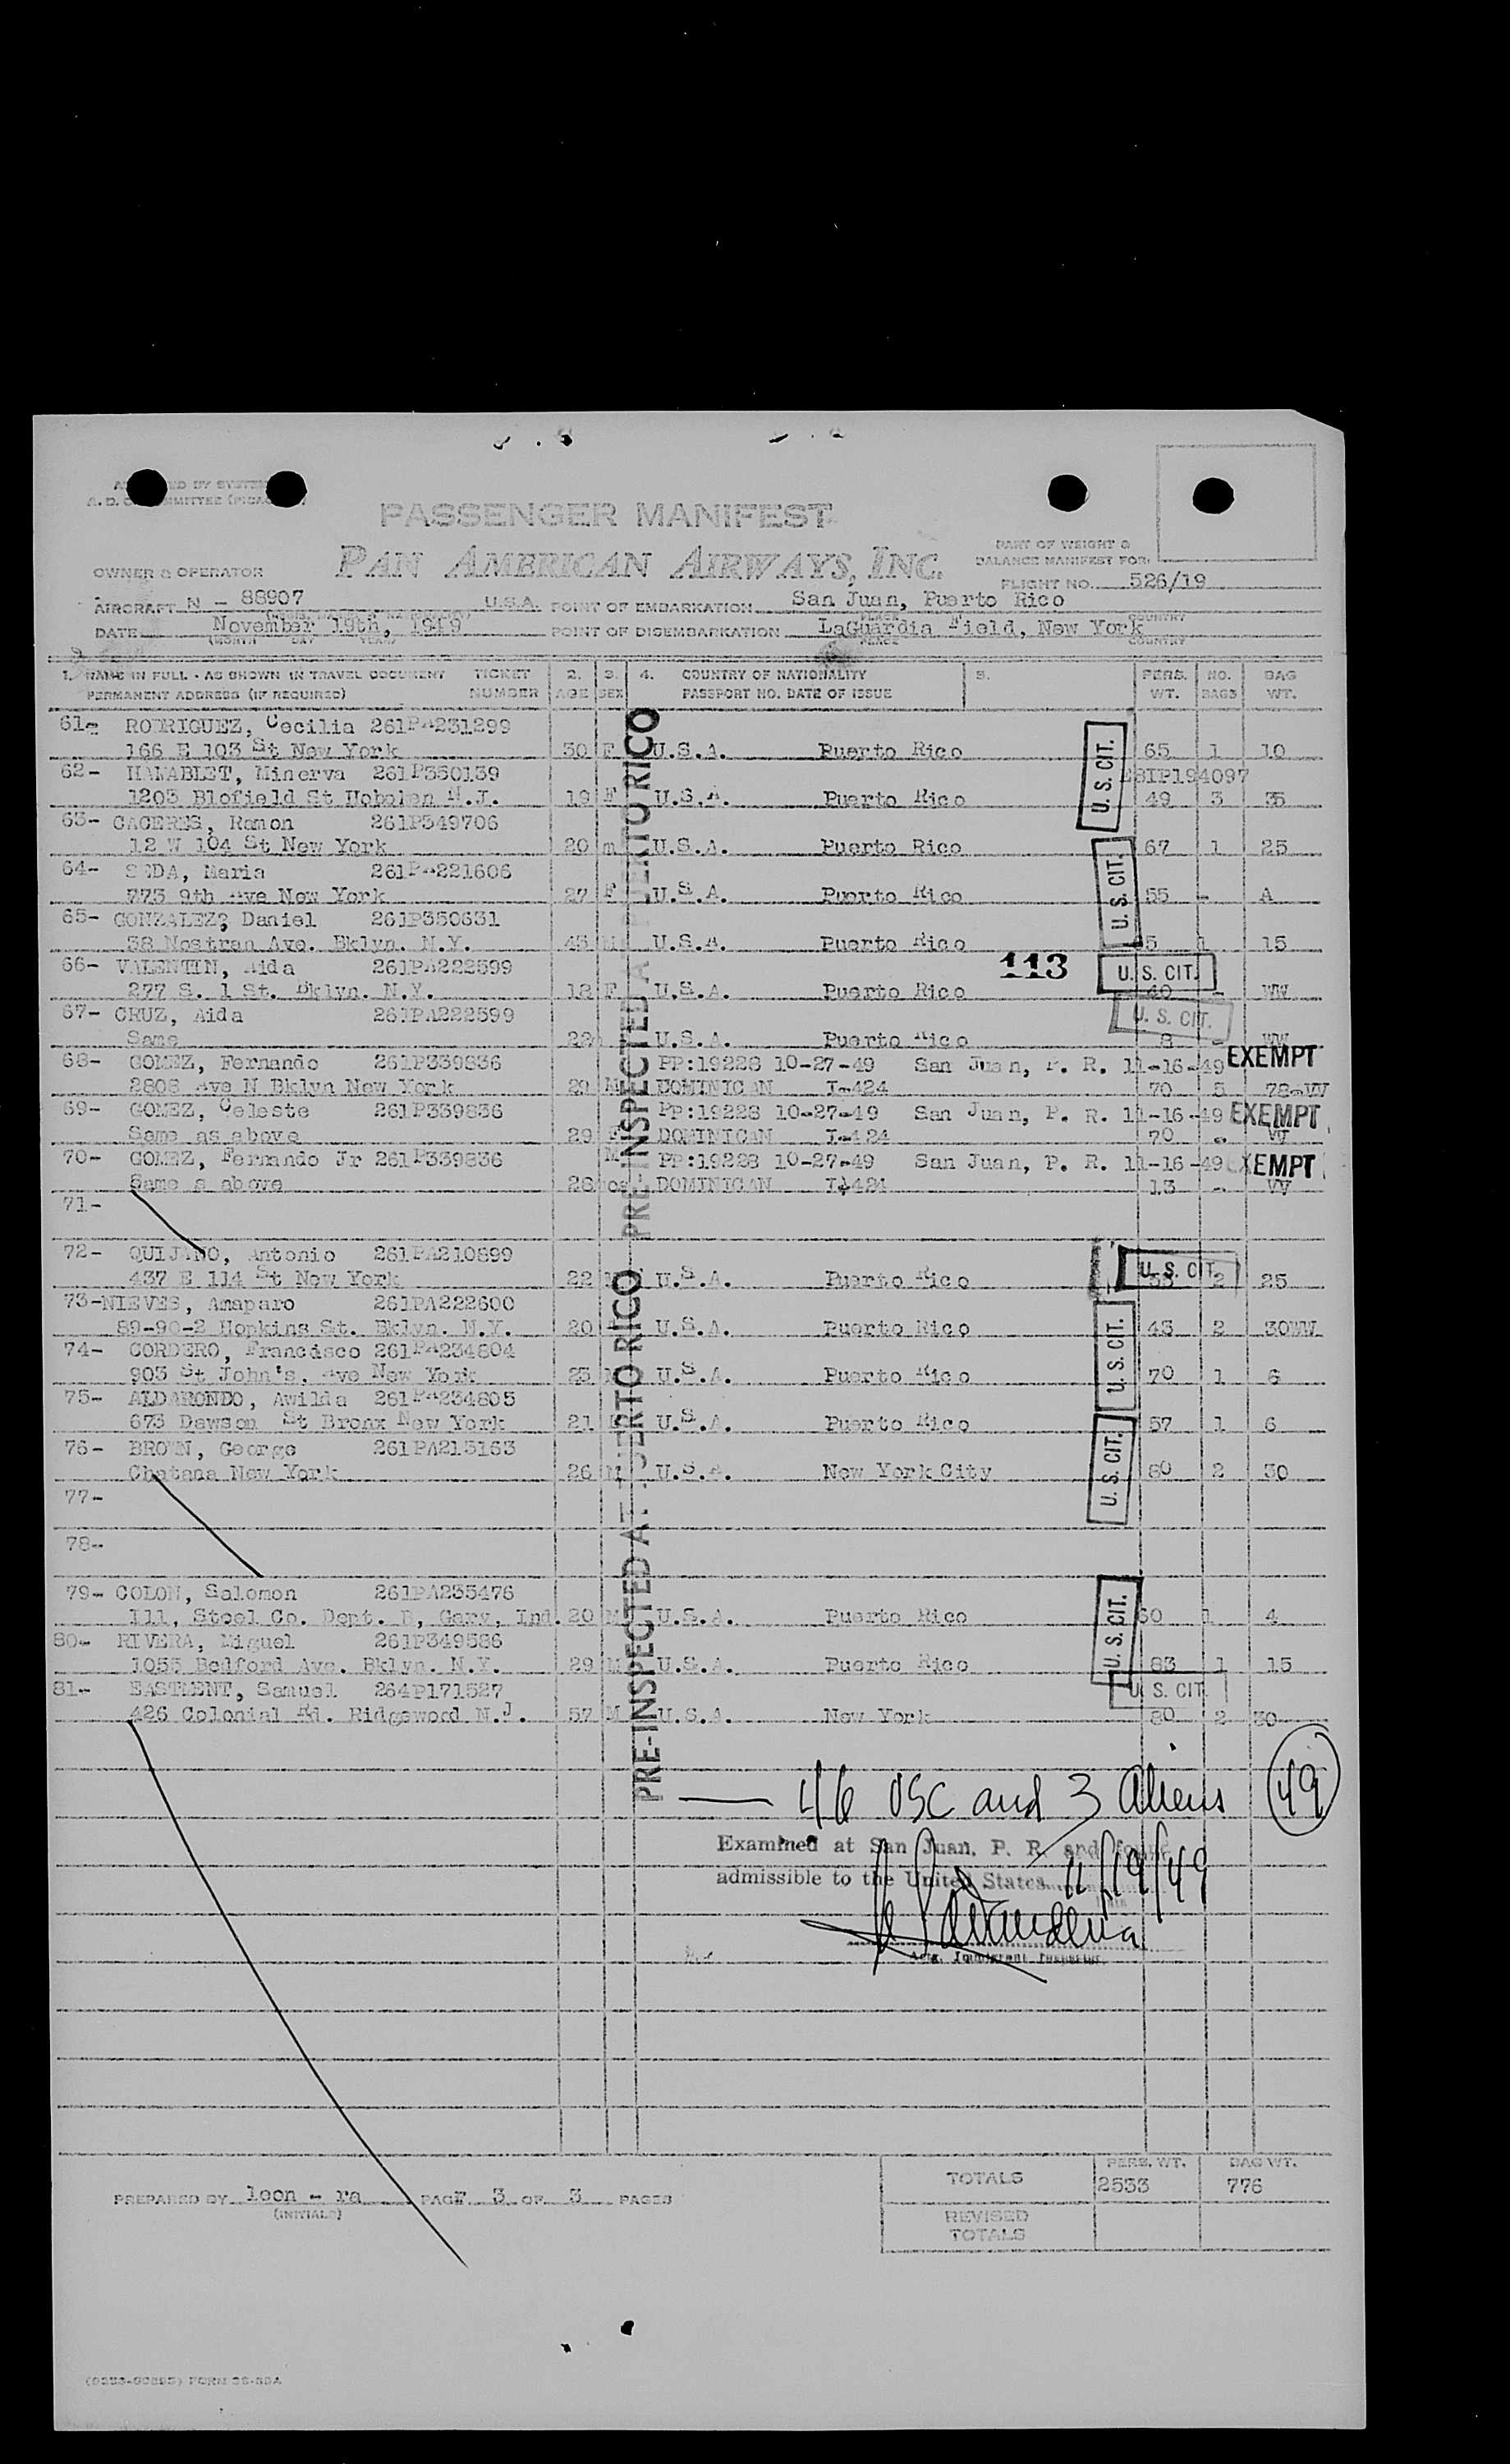 PASSENGER MANIFEST
PAN AMERICAN AIRWAYS, INC.
PART OF WEIGHT &
BALANCE MANIFEST FOR:
OWNER & OPERATOR
FLIGHT NO. 526/19
AIRCRAFT N - 88907 U.S.A. POINT OF EMBARKATION San Juan, Puerto Rico
DATE November 19th, 1949 POINT OF DISEMBARKATION LaGuardia Field, New York
(MONTH DAY YEAR) PLACE COUNTRY
1. NAME IN FULL - AS SHOWN IN TRAVEL DOCUMENT TICKET 2. 3. 4. COUNTRY OF NATIONALITY 5. PERS. NO. BAG
PERMANENT ADDRESS (IF REQUIRED) NUMBER AGE SEX PASSPORT NO. DATE OF ISSUE WT. BAGS WT.
61- RODRIGUEZ, Cecilia 261PA231299
166 E 103 St New York 50 F U.S.A. Puerto Rico 65 1 10
62- Minerva 261P350139
1203 St Hoboken N.J. 19 F U.S.A. Puerto Rico 49 3 35
63- CACERES, Ramon 261P349706
12 W 104 St New York 20 m U.S.A. Puerto Rico 67 1 25
64- SEDA, Maria 261PA221606
773 9th Ave New York 27 F U.S.A. Puerto Rico 55 - A
65- GONZALEZ, Daniel 261P350631
38 Nostran Ave. Bklyn. N.Y. 43 M U.S.A. Puerto Rico 1 15
66- VALENTIN, Aida 261PA222599
277 S. 1 St. Bklyn. N.Y. 18 F U.S.A. Puerto Rico 40 - WW
113
67- CRUZ, Aida 261PA222599
Same U.S.A. Puerto Rico 8 - WW
68- GOMEZ, Fernando 261P339836 PP:19228 10-27-49 San Juan, P. R. 11-16-49 EXEMPT
2808 Ave N Bklyn New York 29 M DOMINICAN I-424 70 5 78-W
69- GOMEZ, Celeste 261P339836 PP:19228 10-27-49 San Juan, P. R. 11-16-49 EXEMPT
Same as above 29 F DOMINICAN I-424 70 - W
70- GOMEZ, Fernando Jr 261P339836 M PP:19228 10-27-49 San Juan, P. R. 11-16-49 EXEMPT
Same s above 28 DOMINICAN I-424 13 - W
71-
72- QUIJANO, Antonio 261PA210899
437 E 114 St New York 22 U.S.A. Puerto Rico 2 25
73- NIEVES, Amaparo 261PA222600
89-90-2 Hopkins St. Bklyn. N.Y. 20 U.S.A. Puerto Rico 43 2 30WW
74- CORDERO, Francisco 261PA234804
903 St John's. Ave New York 25 U.S.A. Puerto Rico 70 1 6
75- ALDARONDO, Awilda 261PA234805
673 Dawson St Bronx New York 21 U.S.A. Puerto Rico 57 1 6
76- BROWN, George 261PA215163
New York 26 M U.S.A. New York City 80 2 30
77-
78-
79- COLON, Salomon 261PA235476
111, Steel Co. Dept. B, Gary, Ind. 20 M U.S.A. Puerto Rico 60 1 4
80- RIVERA, Miguel 261P349586
1055 Bedford Ave. Bklyn. N.Y. 29 M U.S.A. Puerto Rico 83 1 15
81- EASTMENT, Samuel 264P171527
426 Colonial Rd. Ridgewood N.J. 57 M U.S.A. New York 80 2 30
PRE-INSPECTED AT PUERTO RICO
PRE-INSPECTED AT PUERTO RICO
U. S. CIT.
U. S. CIT.
U. S. CIT.
U. S. CIT.
U. S. CIT.
U. S. CIT.
U. S. CIT.
U. S. CIT.
U. S. CIT.
46 USC and 3 Aliens 49
Examined at San Juan, P. R. and found
admissible to the United States 11/19/49
Actg. Immigrant Inspector
PREPARED BY leon - ra PAGE 3 OF 3 PAGES
(INITIALS)
PERS. WT. BAG WT.
TOTALS 2533 776
REVISED
TOTALS